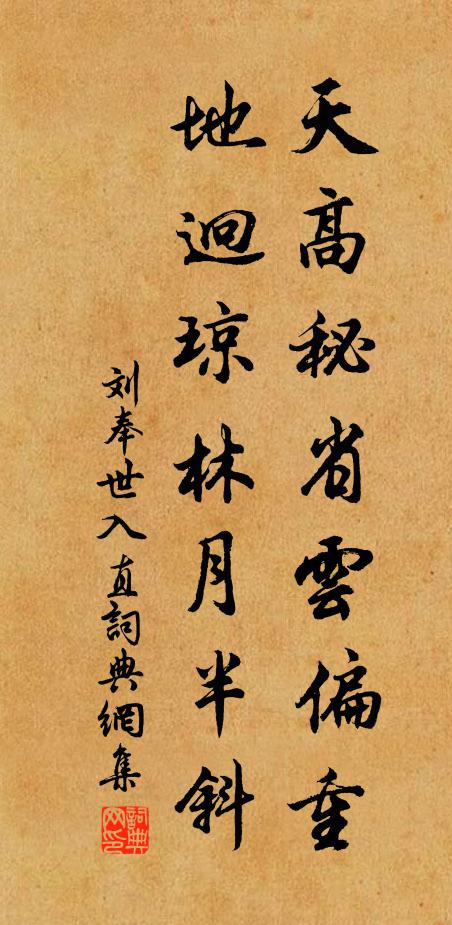 天高秘省雲偏重
地迥琼林月半斜
刘奉世入直詞典網集
詞典网印